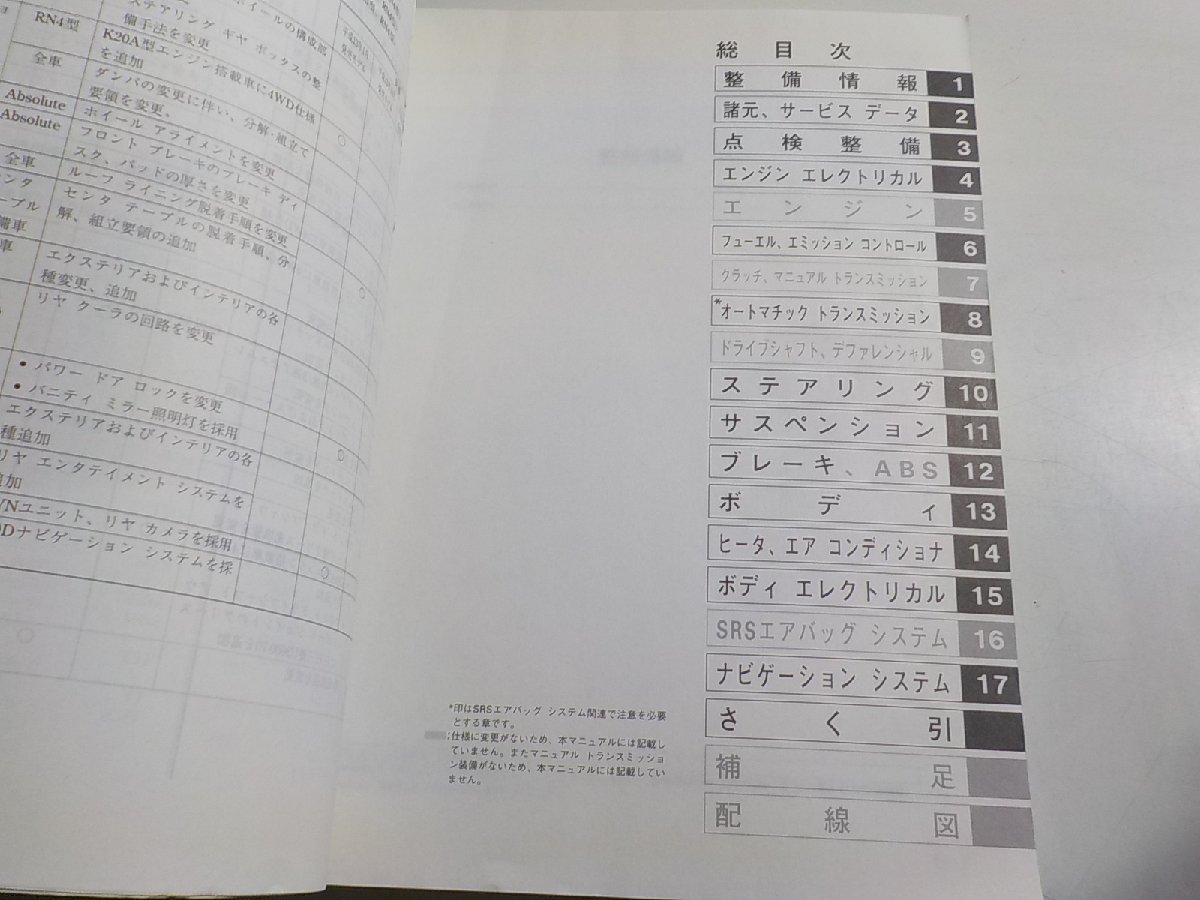 ホイールの構成部
ステアリング ギヤ ボックスの整
備手法を変更
RN4型
K20A型エンジン搭載車に4WD仕様
を追加
全車
ダンパの変更に伴い、分解・組立て
要領を変更、
Absolute
ホイール アライメントを変更
Absolute
フロント ブレーキのブレーキ ディ
スク、パッドの厚さを変更
全車
ルーフ ライニング脱着手順を変更
センタ テーブルの脱着手順、分
解、組立要領の追加
エクステリアおよびインテリアの各
種変更、追加
リヤ クーラの回路を変更
・パワー ドア ロックを変更
・バニティ ミラー照明灯を採用
エクステリアおよびインテリアの各
種追加
リヤ エンタテイメント システムを
追加
ユニット、リヤ カメラを採用
ナビゲーション システムを採
総目次
整備情報 1
諸元、サービス データ 2
点検整備 3
エンジン エレクトリカル 4
エンジン 5
フューエル、エミッション コントロール 6
クラッチ、マニュアル トランスミッション 7
*オートマチック トランスミッション 8
ドライブシャフト、デファレンシャル 9
ステアリング 10
サスペンション 11
ブレーキ、ABS 12
ボディ 13
ヒータ、エア コンディショナ 14
ボディ エレクトリカル 15
SRSエアバッグ システム 16
ナビゲーション システム 17
さく引
補足
配線図
*印はSRSエアバッグ システム関連で注意を必要
とする章です。
:仕様に変更がないため、本マニュアルには記載し
ていません。またマニュアル トランスミッショ
ン装備がないため、本マニュアルには記載してい
ません。